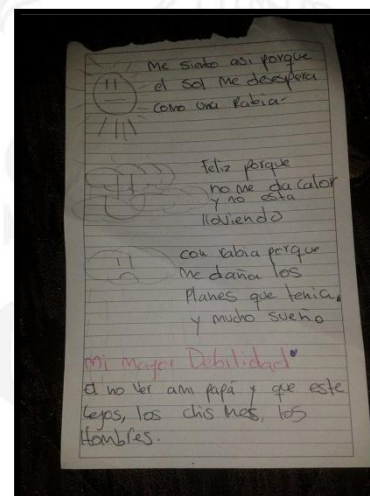 Me siento asi porque
el sol me desespera
como una Rabia-
Feliz porque
no me da calor
y no esta
lloviendo
con rabia porque
me daña los
Planes que tenia,
y mucho sueño
Mi mayor Debilidad
a no ver ami papá y que este
lejos, los chismes, los
Hombres.